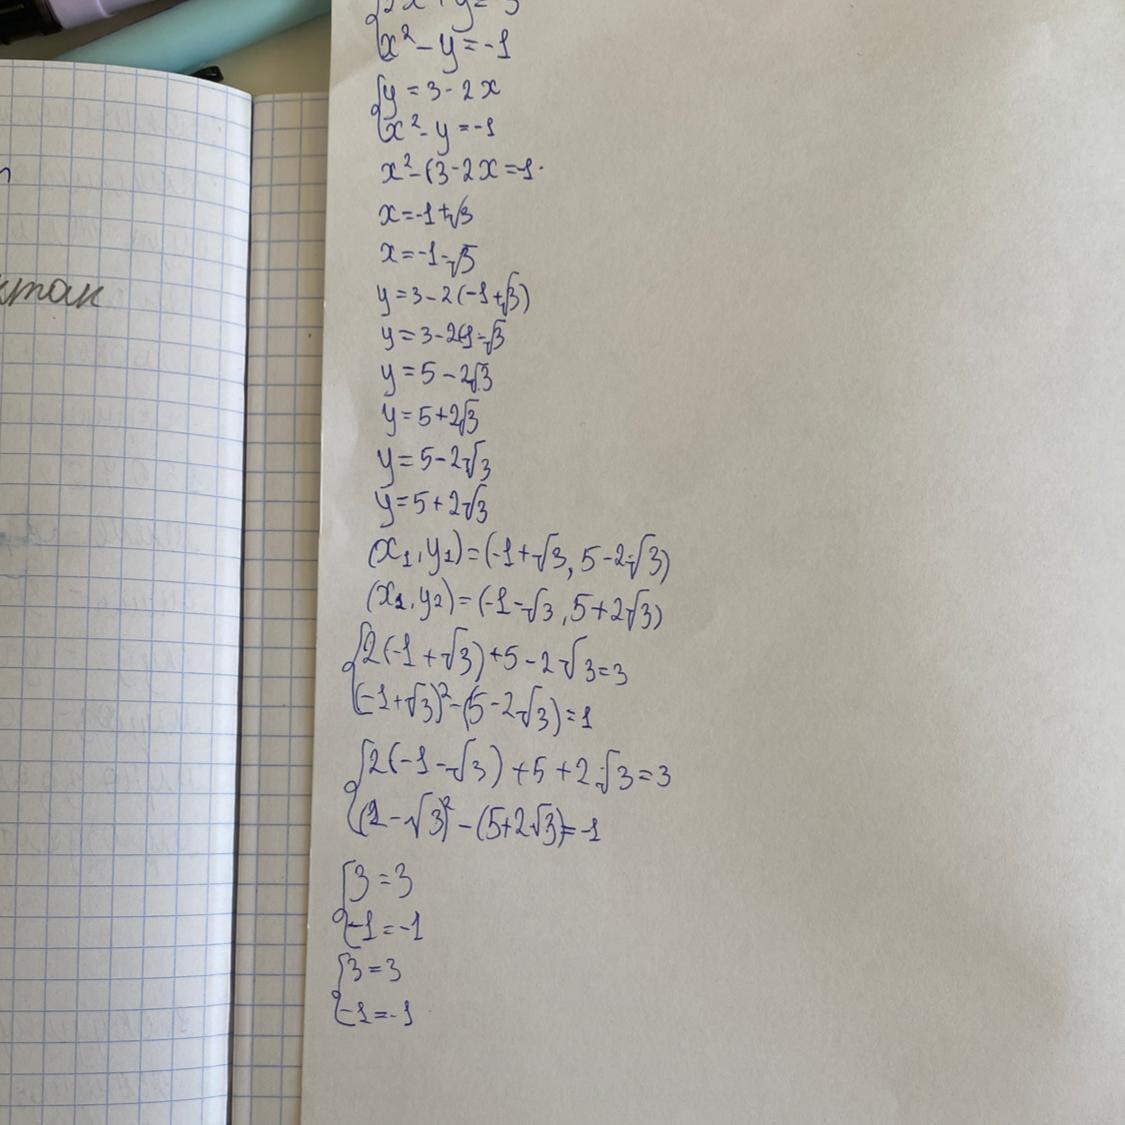 2x + y = 3
x² - y = -1
y = 3 - 2x
x² - y = -1
x² - (3 - 2x = -1.
x = -1 + √3
x = -1 - √3
y = 3 - 2(-1 + √3)
y = 3 - 2(-1 - √3
y = 5 - 2√3
y = 5 + 2√3
y = 5 - 2√3
y = 5 + 2√3
(x₁, y₁) = (-1 + √3, 5 - 2√3)
(x₂, y₂) = (-1 - √3, 5 + 2√3)
2(-1 + √3) + 5 - 2√3 = 3
(-1 + √3)² - (5 - 2√3) = 1
2(-1 - √3) + 5 + 2√3 = 3
(1 - √3)² - (5 + 2√3) = -1
3 = 3
-1 = -1
3 = 3
-1 = -1